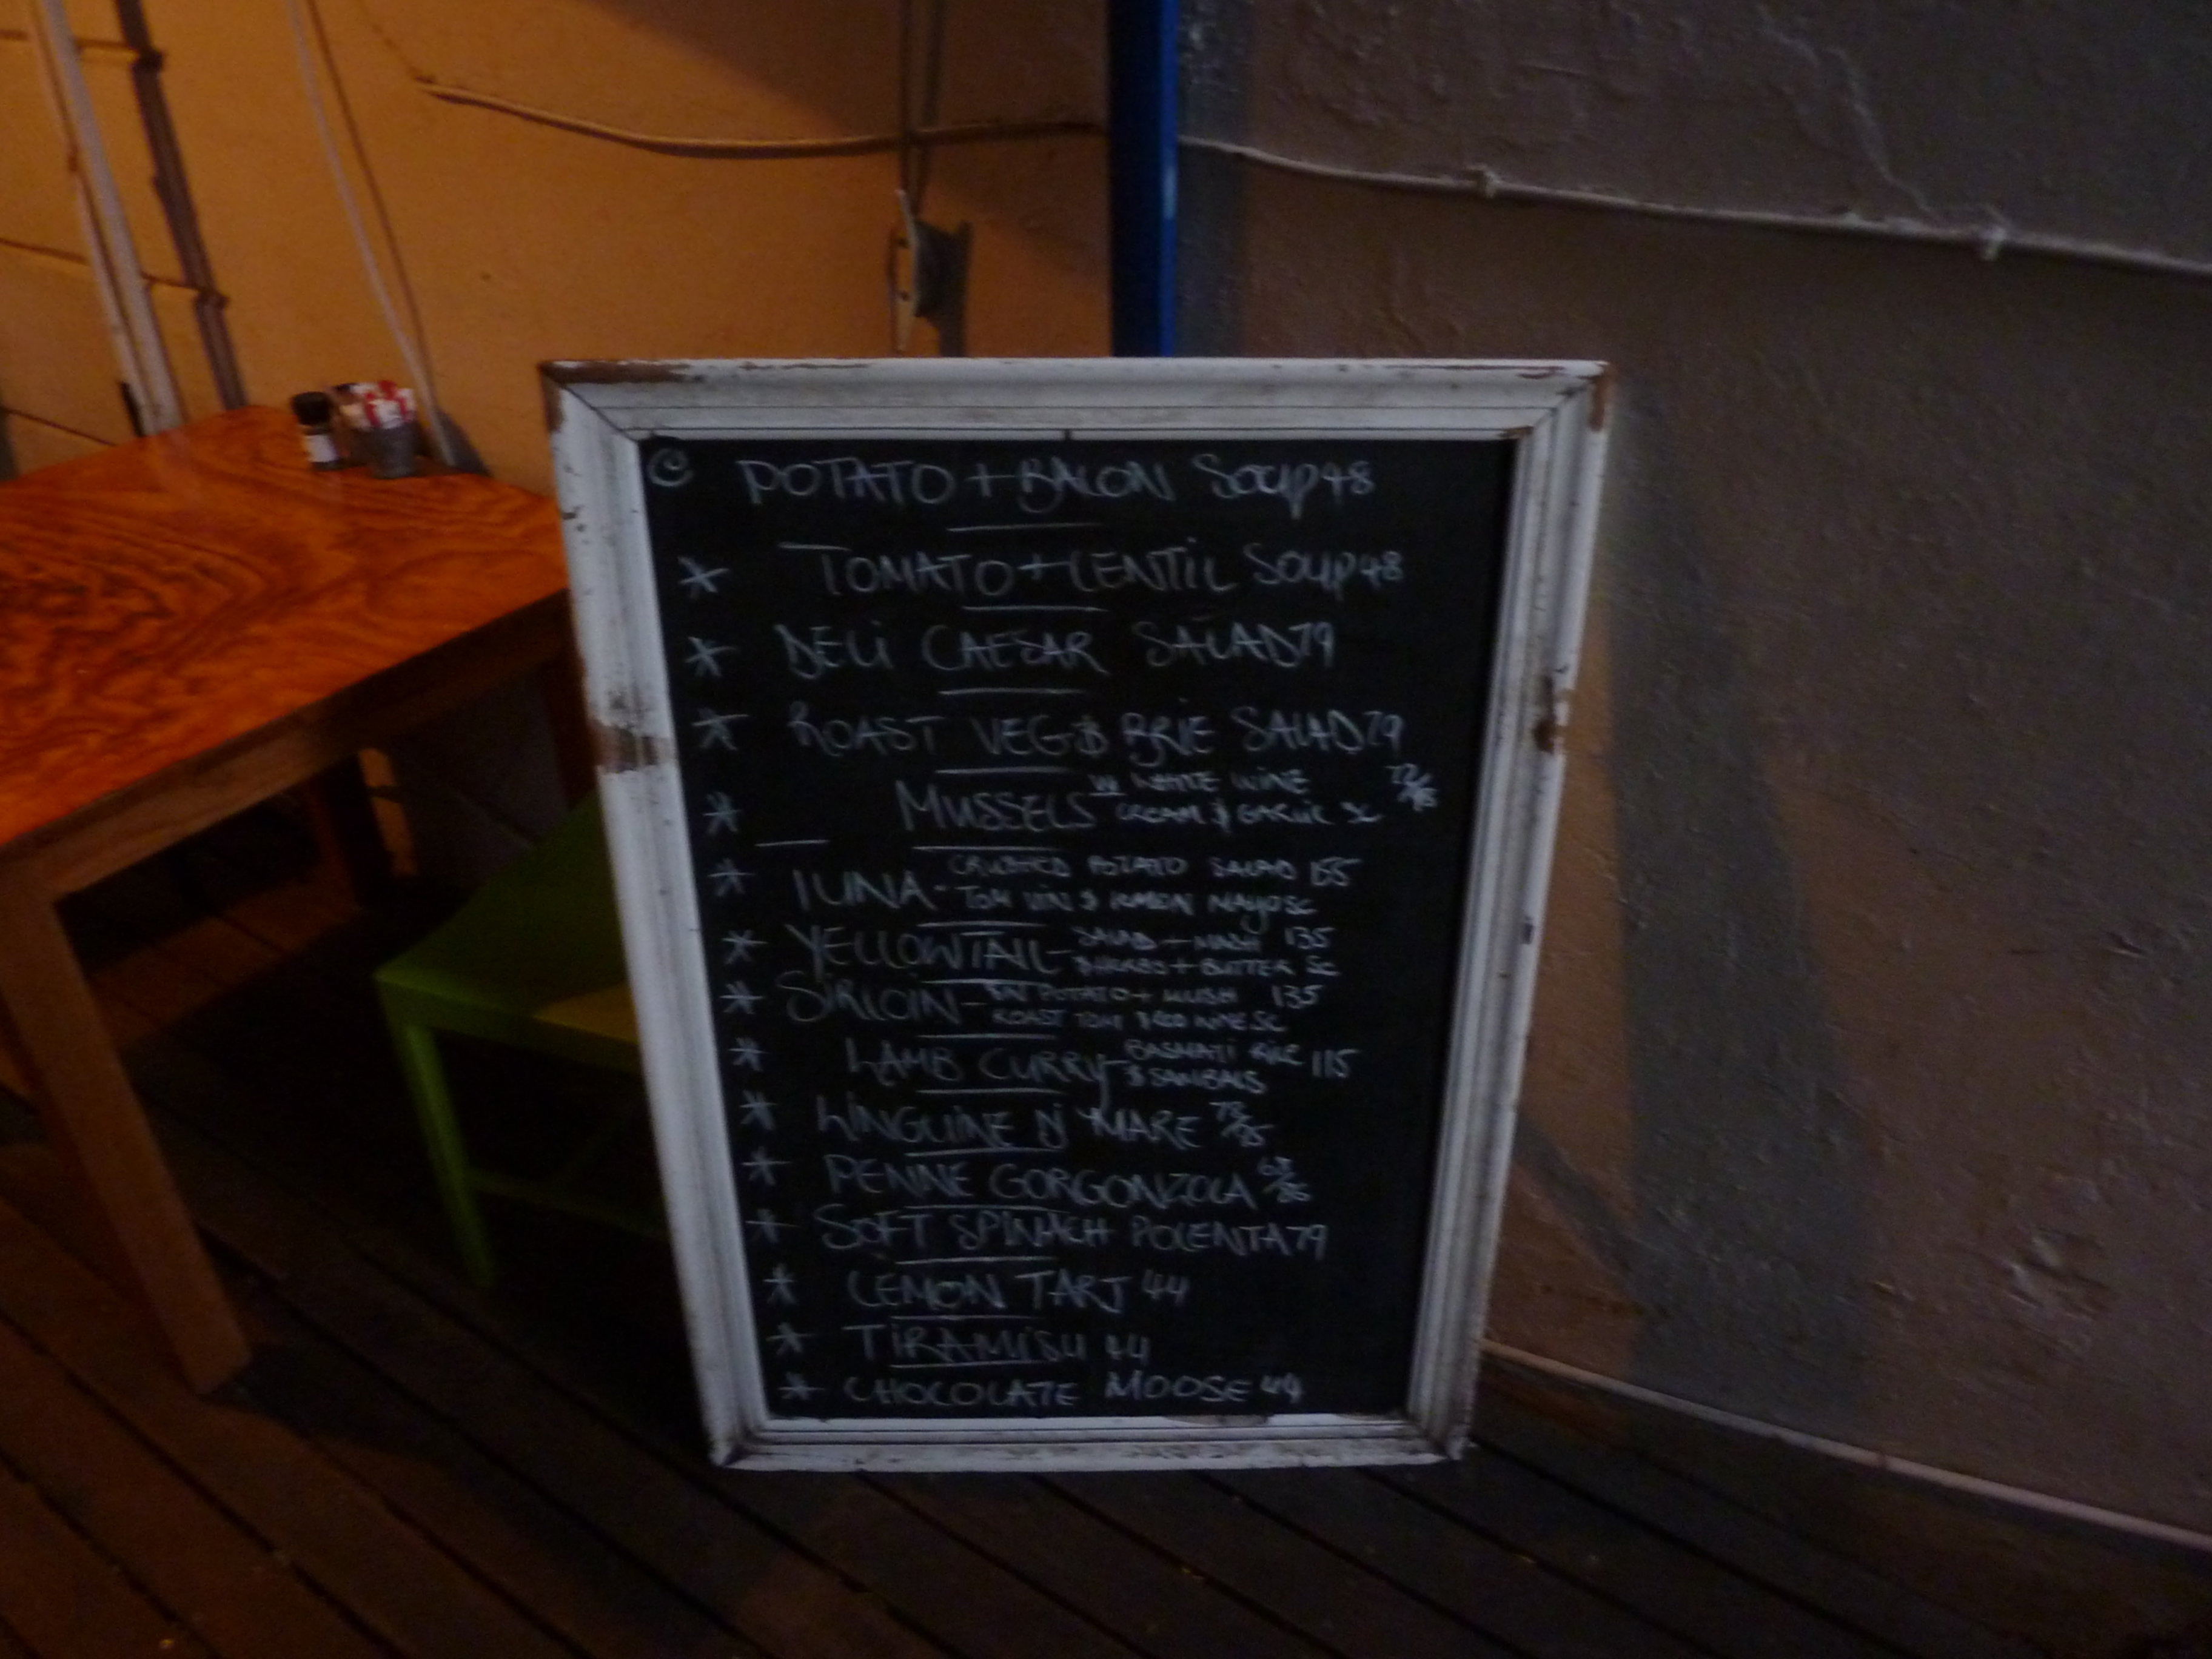 POTATO + BACON SOUP 48
* TOMATO + LENTIL SOUP 48
* DELI CAESAR SALAD 79
* ROAST VEG & BRIE SALAD 79
* MUSSELS W WHITE WINE
CREAM & GARLIC SC
* TUNA - CRUSHED POTATO SALAD 155
TOM VIN & LEMON MAYO SC
* YELLOWTAIL - SALAD + MASH 135
+ BUTTER SC
* SIRLOIN - POTATO + MUSH 135
ROAST TOM & RED WINE SC
* LAMB CURRY - BASMATI RICE 115
& SAMBALS
* LINGUINE MARE
* PENNE GORGONZOLA
* SOFT SPINACH POLENTA 79
* LEMON TART 44
* TIRAMISU 44
* CHOCOLATE MOOSE 44